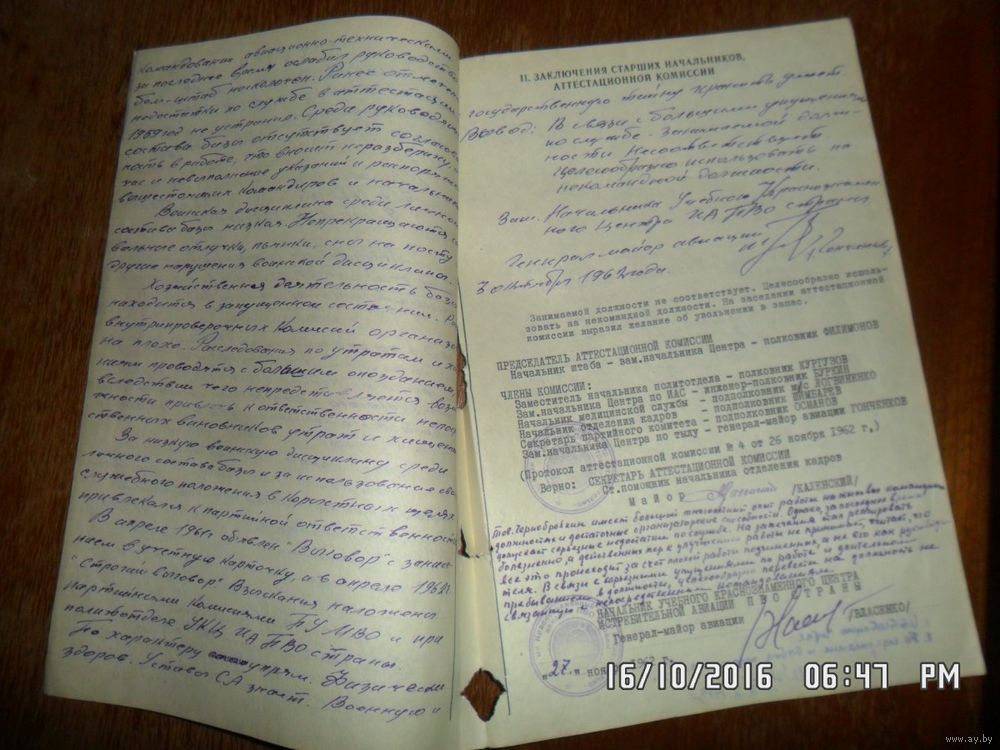 командования авиационно-техническими
за последнее время ослабил руководство
Ранее отмечен
недостатки по службе в аттестации
1959 год не устранил. Среди руководящ
состава базы отсутствует согласован
ность в работе, что вносит неразбериху
и невыполнение указаний и распоряж
вышестоящих командиров и начальни
Воинская дисциплина среди личного
состава базы низкая. Непрекращаются
вольные отлучки, пьянки, сны на посту
другие нарушения воинской дисциплины.
Хозяйственная деятельность базы
находится в запущенном состоянии.
внутрипроверочных комиссий организ
на плохо. Расследования по утратам и х
проводятся с большим опозданием
вследствии чего непредставляется возм
жности привлечь к ответственности непос
ственных виновников утрат и хищений
За низкую воинскую дисциплину среди
личного состава базы и за использование
служебного положения в корыстных целях
привлекался к партийной ответственност
В апреле 1961г. объявлен "Выговор" с занес
нием в учетную карточку, а в апреле 1962г.
"Строгий выговор". Взыскания наложены
партийными комиссиями ПУ МВО и при
политотделе УКЦ ИА ПВО страны.
По характеру упрям. Физически
здоров. Уставы СА знает. Военную и
II. ЗАКЛЮЧЕНИЯ СТАРШИХ НАЧАЛЬНИКОВ,
АТТЕСТАЦИОННОЙ КОМИССИИ
государственную тайну хранить умеет.
Вывод: В связи с большими упущениями
по службе - занимаемой долж-
ности несоответствует
Целесообразно использовать на
некомандной должности.
Зам. Начальника Учебного Краснознамен
ного Центра ИА ПВО страны
Генерал-майор авиации
30 октября 1962 года.
Занимаемой должности не соответствует. Целесообразно исполь-
зовать на некомандной должности. На заседании аттестационной
комиссии выразил желание об увольнении в запас.
ПРЕДСЕДАТЕЛЬ АТТЕСТАЦИОННОЙ КОМИССИИ
Начальник штаба - зам.начальника Центра - полковник ФИЛИМОНОВ
ЧЛЕНЫ КОМИССИИ:
Заместитель начальника политотдела - полковник КУРГУЗОВ
Зам.начальника Центра по ИАС - инженер-полковник БУРКИН
Начальник медицинской службы - подполковник м/с ЛОГВИНЕНКО
Начальник отделения кадров - подполковник ШИМБАРЕВ
Секретарь партийного комитета - подполковник ОСМАНОВ
Зам.начальника Центра по тылу - генерал-майор авиации ГОНЧЕНКОВ
(Протокол аттестационной комиссии № 4 от 26 ноября 1962 г.)
Верно: СЕКРЕТАРЬ АТТЕСТАЦИОННОЙ КОМИССИИ
Ст.помощник начальника отделения кадров
Майор /КАЗЕВСКИЙ/
имеет большой опыт работы на
должностях и достаточные организаторские способности. Однако, за последнее время
допускает серьезные недостатки по службе. На замечания стал реагировать
болезненно, а действенных мер к улучшению работы не принимает, считает, что
все это происходит за счет плохой работы подчиненных, а не его как руководи-
теля. В связи с серьезными упущениями по работе и длительном
пребыванием в должности, целесообразно перевести на должность не
связанную с непосредственным командованием.
НАЧАЛЬНИК УЧЕБНОГО КРАСНОЗНАМЕННОГО ЦЕНТРА
ИСТРЕБИТЕЛЬНОЙ АВИАЦИИ ПВО СТРАНЫ
Генерал-майор авиации /ВЛАСЕНКО/
"27" ноя 1962 г.
16/10/2016 06:47 PM
www.ay.by